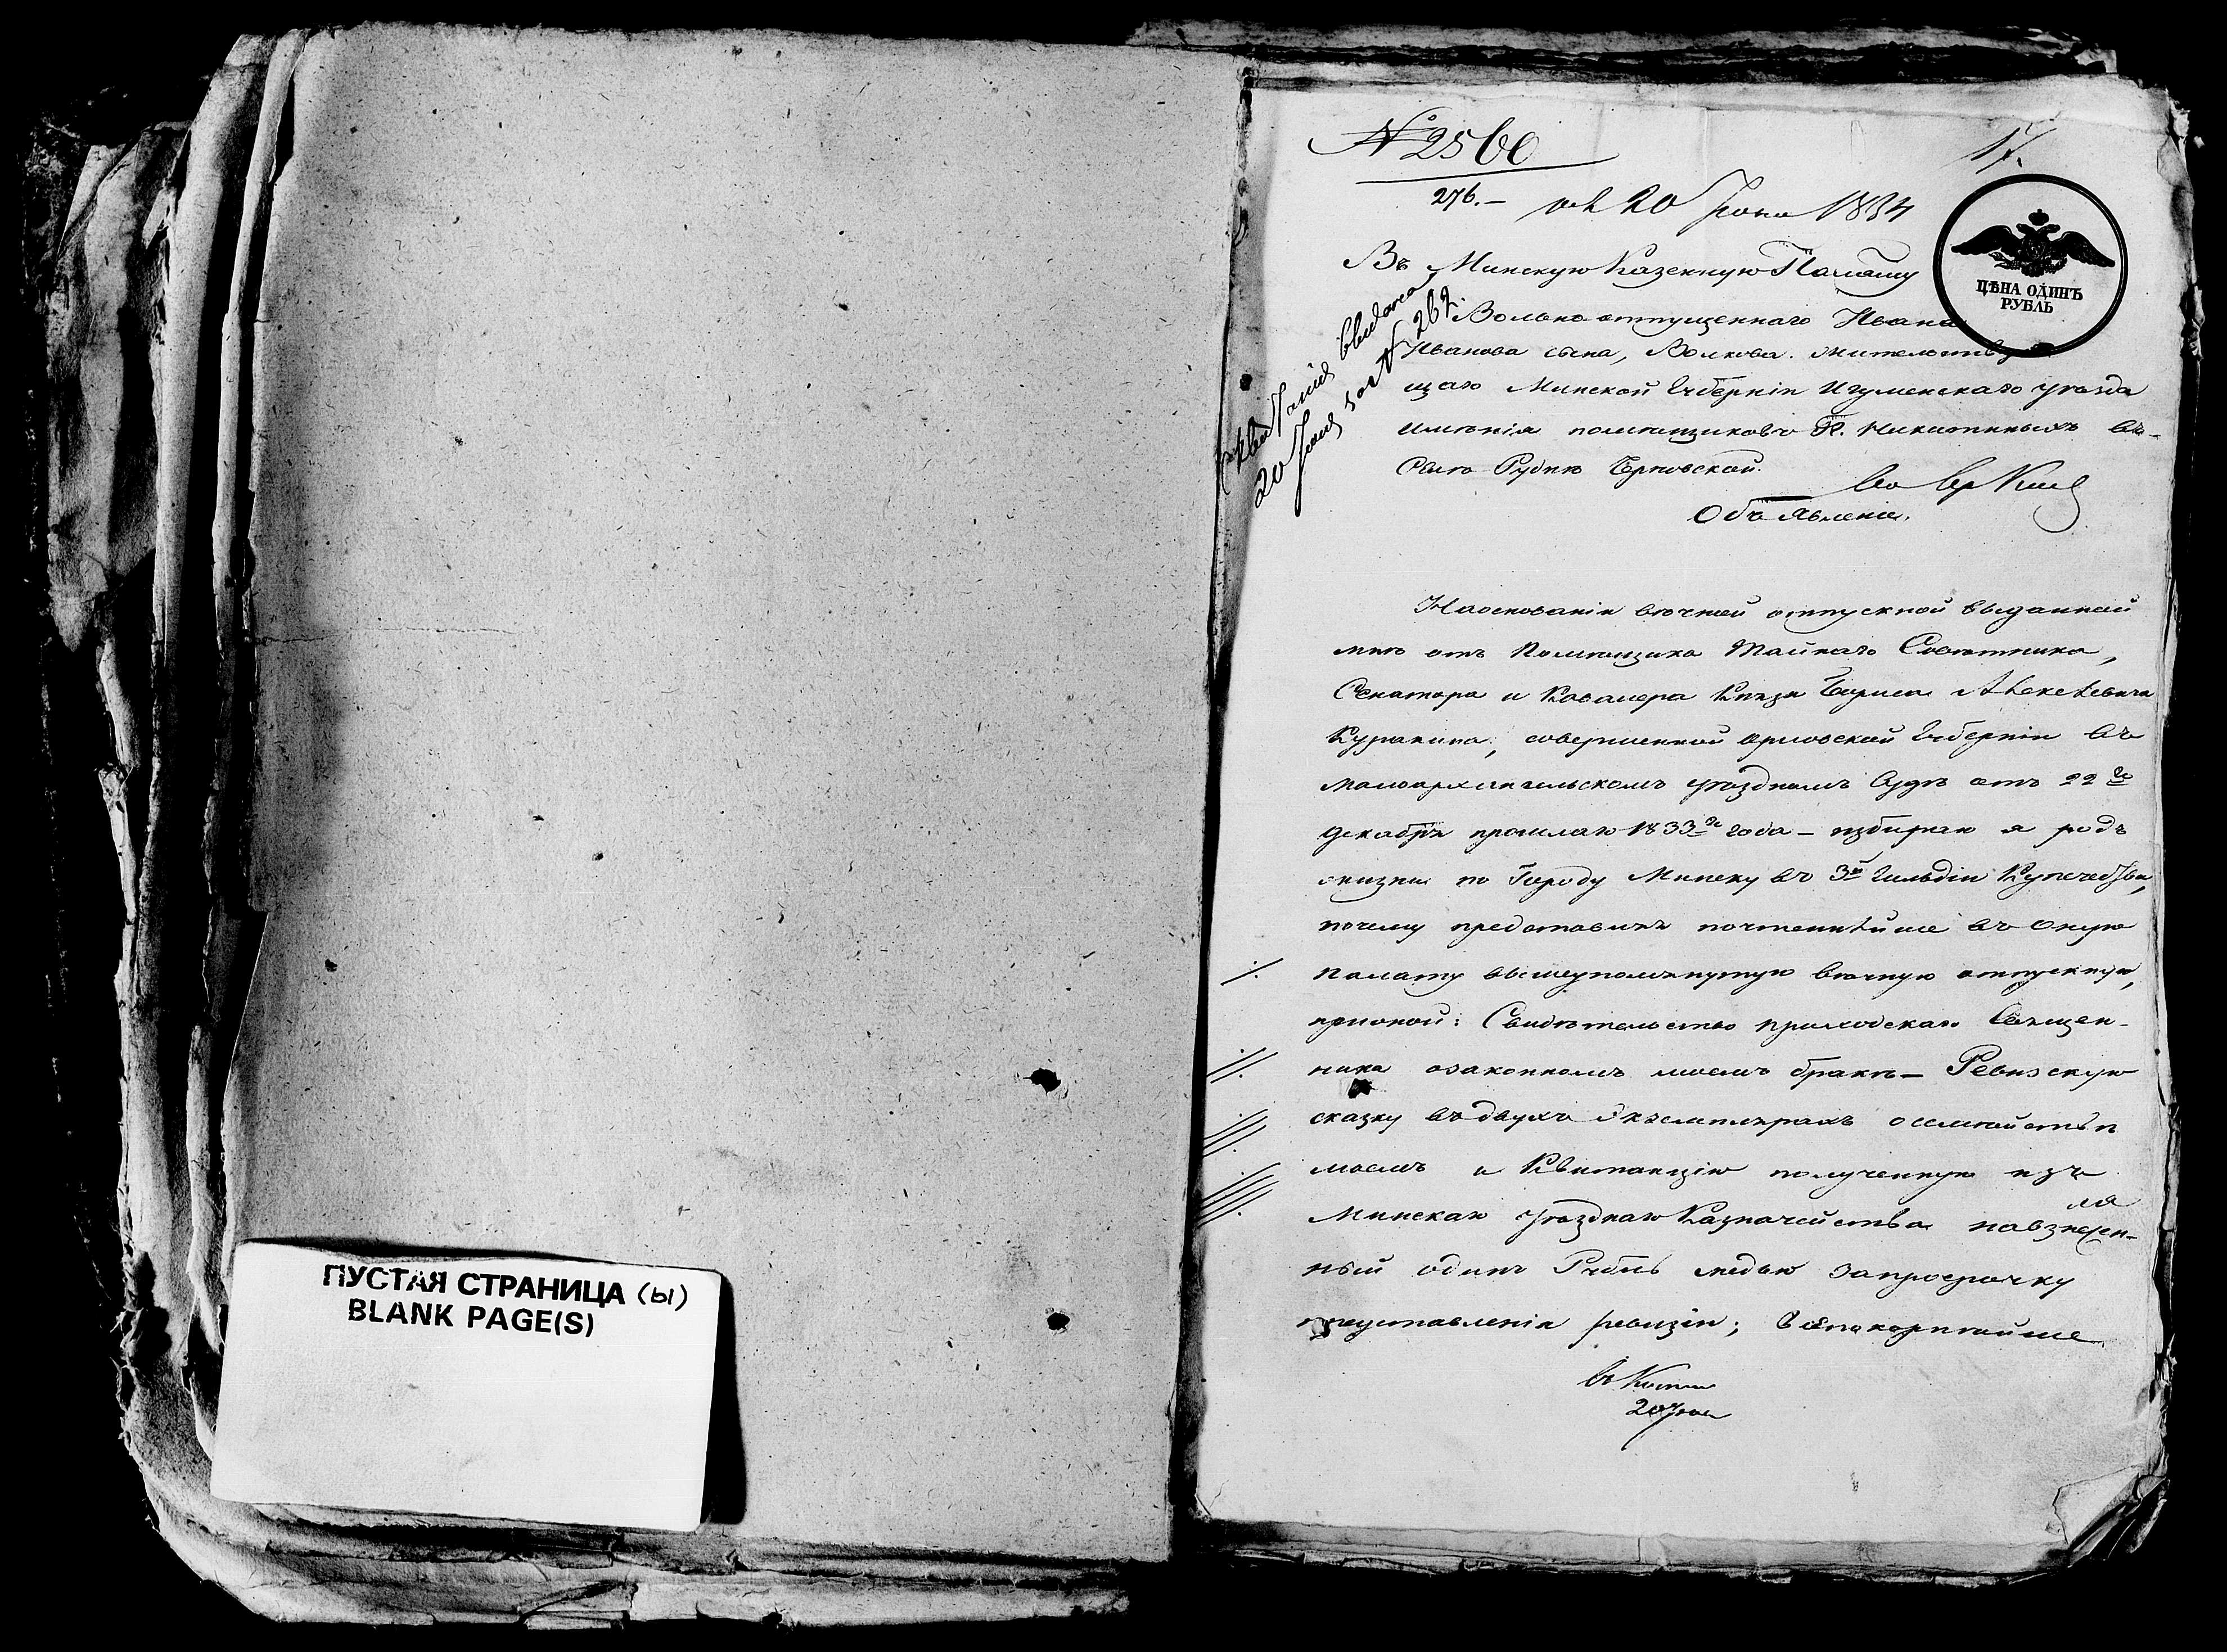 ПУСТАЯ СТРАНИЦА (ы)
BLANK PAGE(S)
№ 2560
17.
276.–
20 Іюня 1834
ЦѢНА ОДИНЪ
РУБЛЬ
Въ Минскую Казенную Палату
Вольно отпущеннаго Ивана
Иванова сына, Волкова. жительству
щаго Минской Губерніи Игуменскаго уѣзда
имѣнія помѣщиковъ Г. Никитиныхъ въ
Объявленіе.
Квитанція выдана
20 Іюня за № 262
Наоснованіи вѣчной отпускной выданной
мнѣ отъ Помѣщика Тайнаго Совѣтника,
Сенатора и Кавалера Князя Бориса Алексѣевича
Куракина, совершенной Орловской Губерніи въ
Малоархангельскомъ уѣздномъ Судѣ отъ 22го
Декабря прошлаго 1833го года – избираю я родъ
жизни по Городу Минску въ 3й Гильдіи Купечества,
почему представляя почтеннѣйше въ оную
Палату вышеупомянутую вѣчную отпускную,
прионой: Свидѣтельство приходскаго Священ-
ника озаконномъ моемъ бракѣ – Ревизскую
сказку въ двухъ Экземплярахъ о семѣйствѣ
моемъ и Квитанцію полученную изъ
Минскаго уѣзднаго Казначейства
ный одинъ Рубль медью запросрочку
представленія ревизіи; всепокорнѣйше
20 Іюня